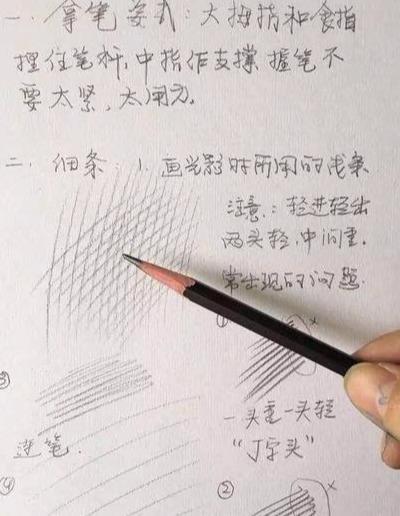 一、拿笔姿式：大拇指和食指
捏住笔杆,中指作支撑,握笔不
要太紧,太用力。
二、细条：1.画光影时所用的线条
注意：轻进轻出
两头轻,中间重.
常出现的问题.
① x
③
一头重一头轻
“丁字头”
连笔.
④
② x